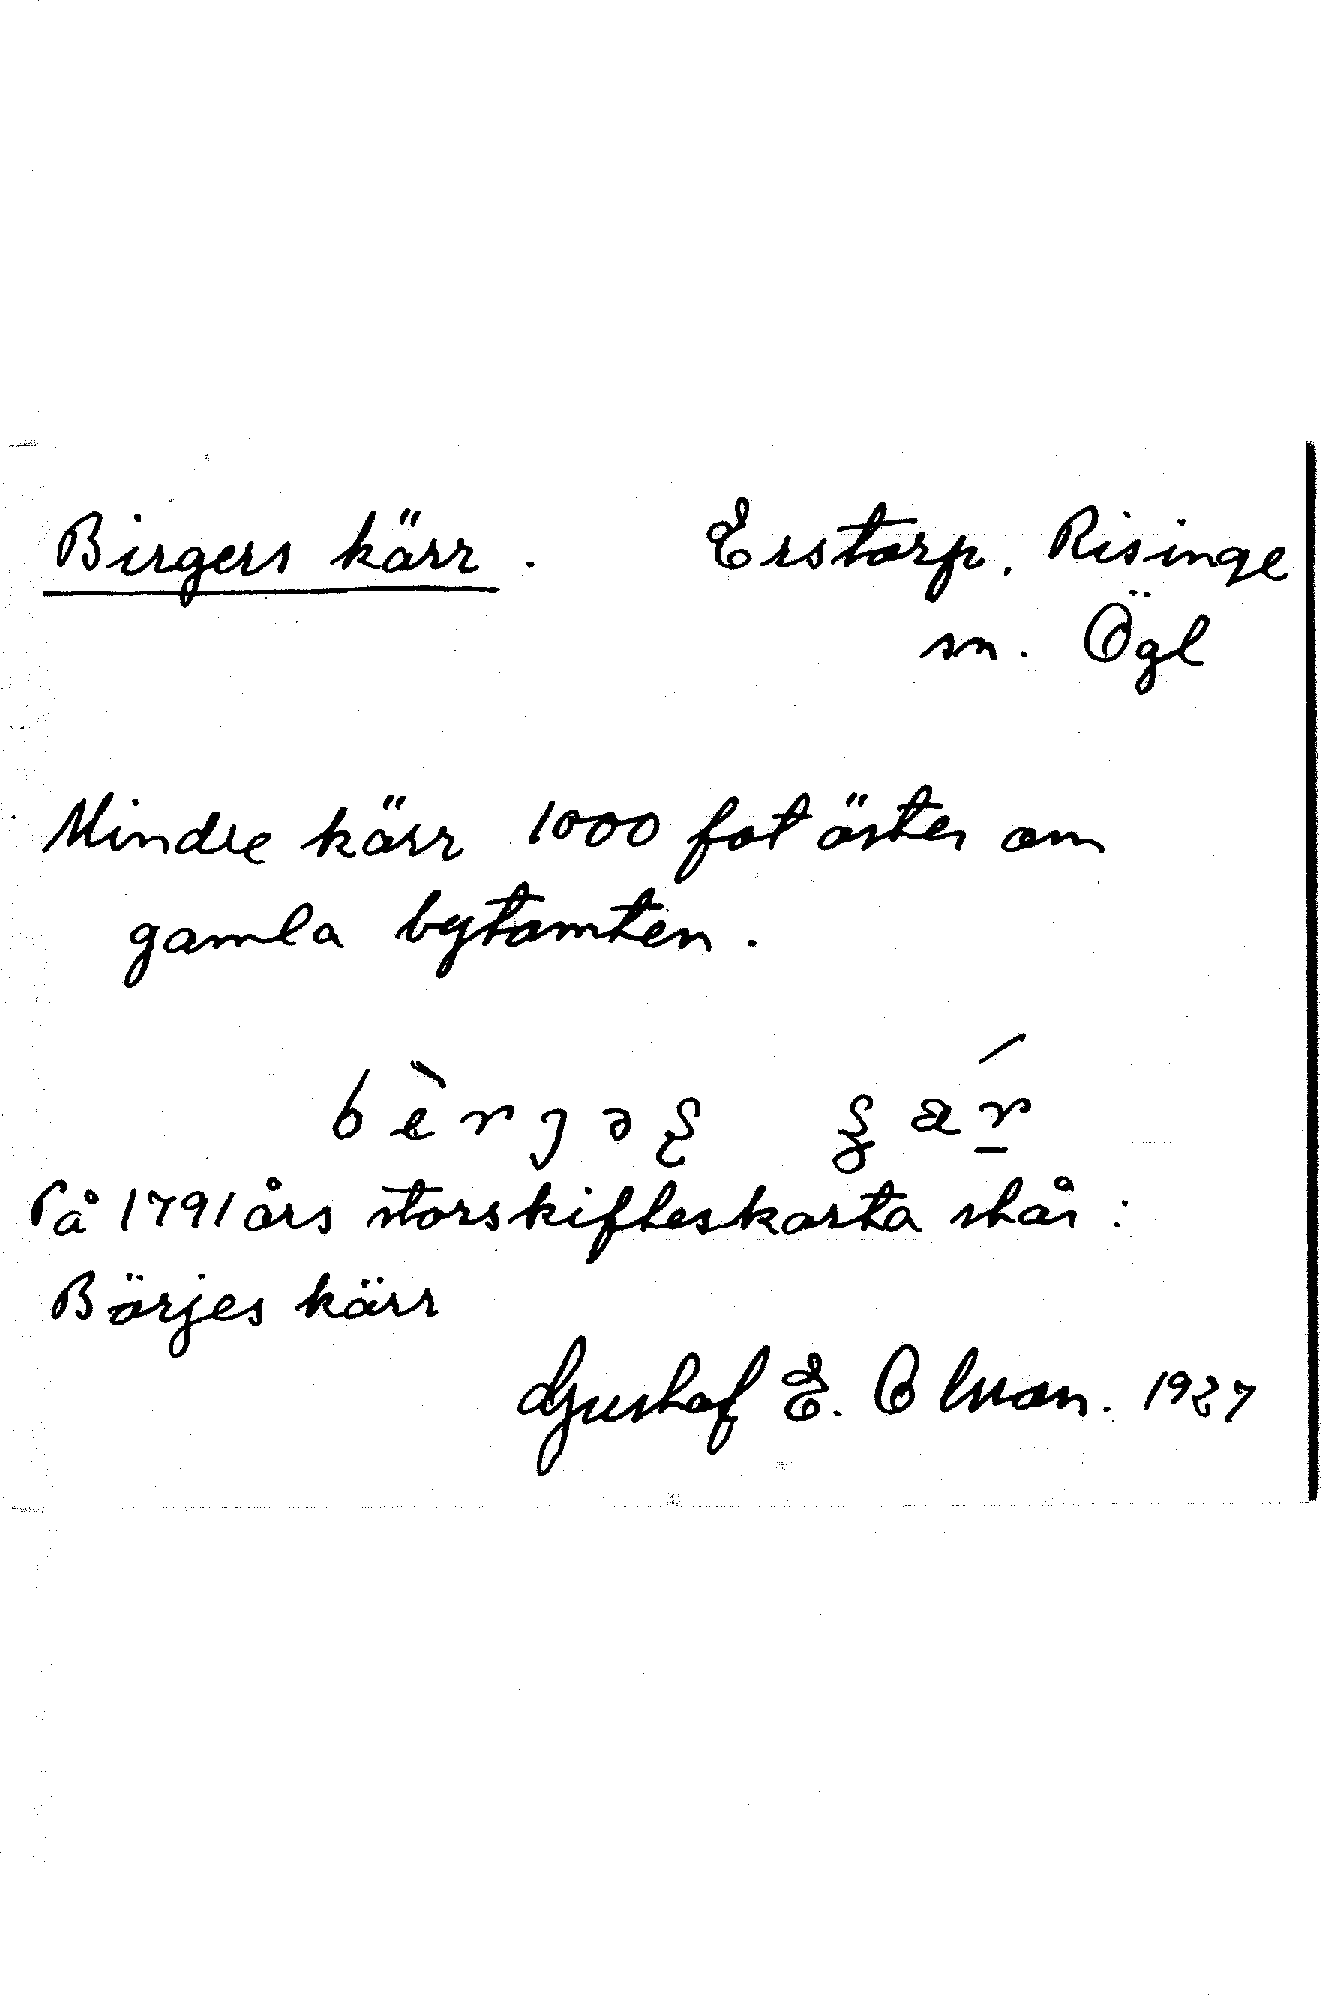 Birgers kärr. Erstorp. Risinge
sn. Ögl
Mindre kärr 1000 fot öster om
gamla bytomten.
På 1791 års storskifteskarta står:
Börjes kärr
Gustaf E. Olsson. 1927